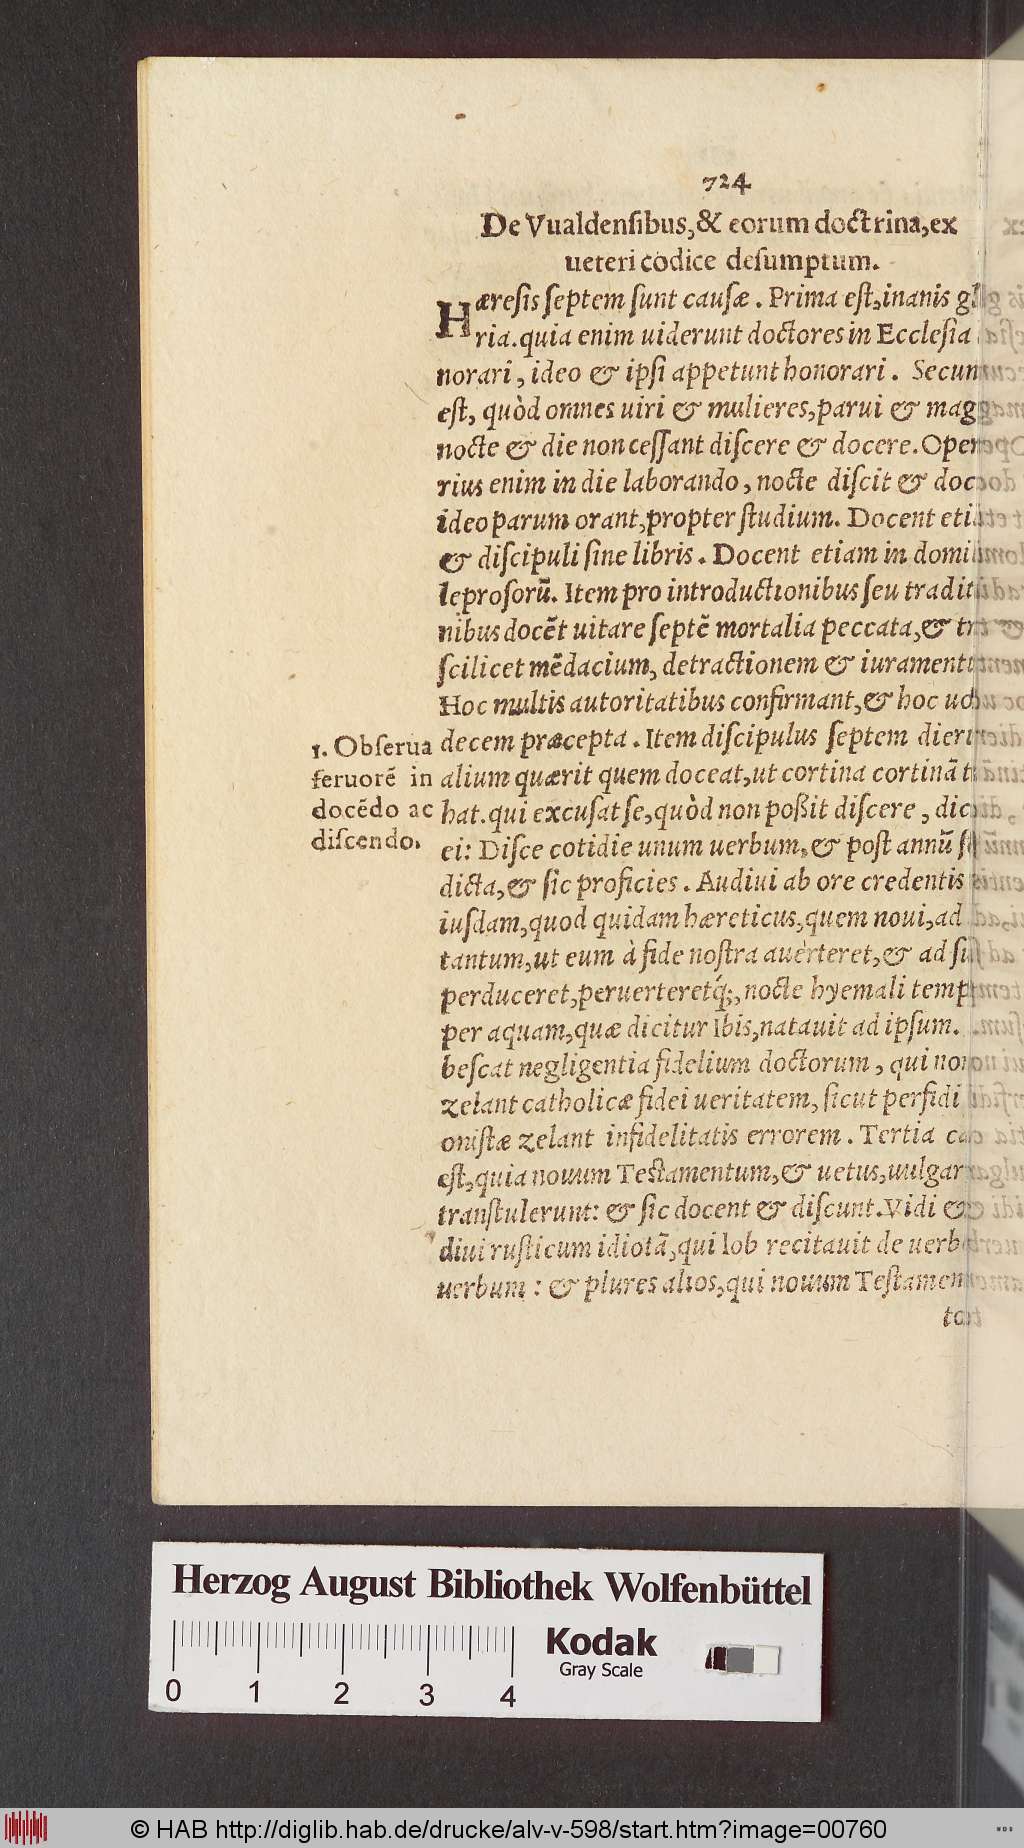 724
De Vualdenſibus, & eorum doctrina, ex
ueteri codice deſumptum.
Hæreſis ſeptem ſunt cauſæ. Prima eſt, inanis
ria. quia enim uiderunt doctores in Eccleſia
norari, ideo & ipſi appetunt honorari.
eſt, quòd omnes uiri & mulieres, parui &
nocte & die non ceſſant diſcere & docere.
rius enim in die laborando, nocte diſcit &
ideo parum orant, propter ſtudium. Docent
& diſcipuli ſine libris. Docent etiam in
leproſorū. Item pro introductionibus ſeu
nibus docēt uitare ſeptē mortalia peccata, &
ſcilicet mēdacium, detractionem &
Hoc multis autoritatibus confirmant, & hoc
decem præcepta. Item diſcipulus ſeptem
1. Obſerua
feruorē in
docēdo ac
diſcendo.
alium quærit quem doceat, ut cortina cortinā
hat. qui excuſat ſe, quòd non poßit diſcere,
ei: Diſce cotidie unum uerbum, & poſt annū
dicta, & ſic proficies. Audiui ab ore credentis
iuſdam, quod quidam hæreticus, quem noui, ad
tantum, ut eum à fide noſtra auèrteret, & ad
perduceret, peruerteretq́;, nocte hyemali
per aquam, quæ dicitur Ibis, natauit ad ipſum.
beſcat negligentia fidelium doctorum, qui
zelant catholicæ fidei ueritatem, ſicut perfidi
oniſtæ zelant infidelitatis errorem. Tertia
eſt, quia nouum Teſtamentum, & uetus,
tranſtulerunt: & ſic docent & diſcunt. Vidi &
diui ruſticum idiotā, qui Iob recitauit de
uerbum: & plures alios, qui nouum
Herzog August Bibliothek Wolfenbüttel
Kodak
Gray Scale
0 1 2 3 4
© HAB http://diglib.hab.de/drucke/alv-v-598/start.htm?image=00760